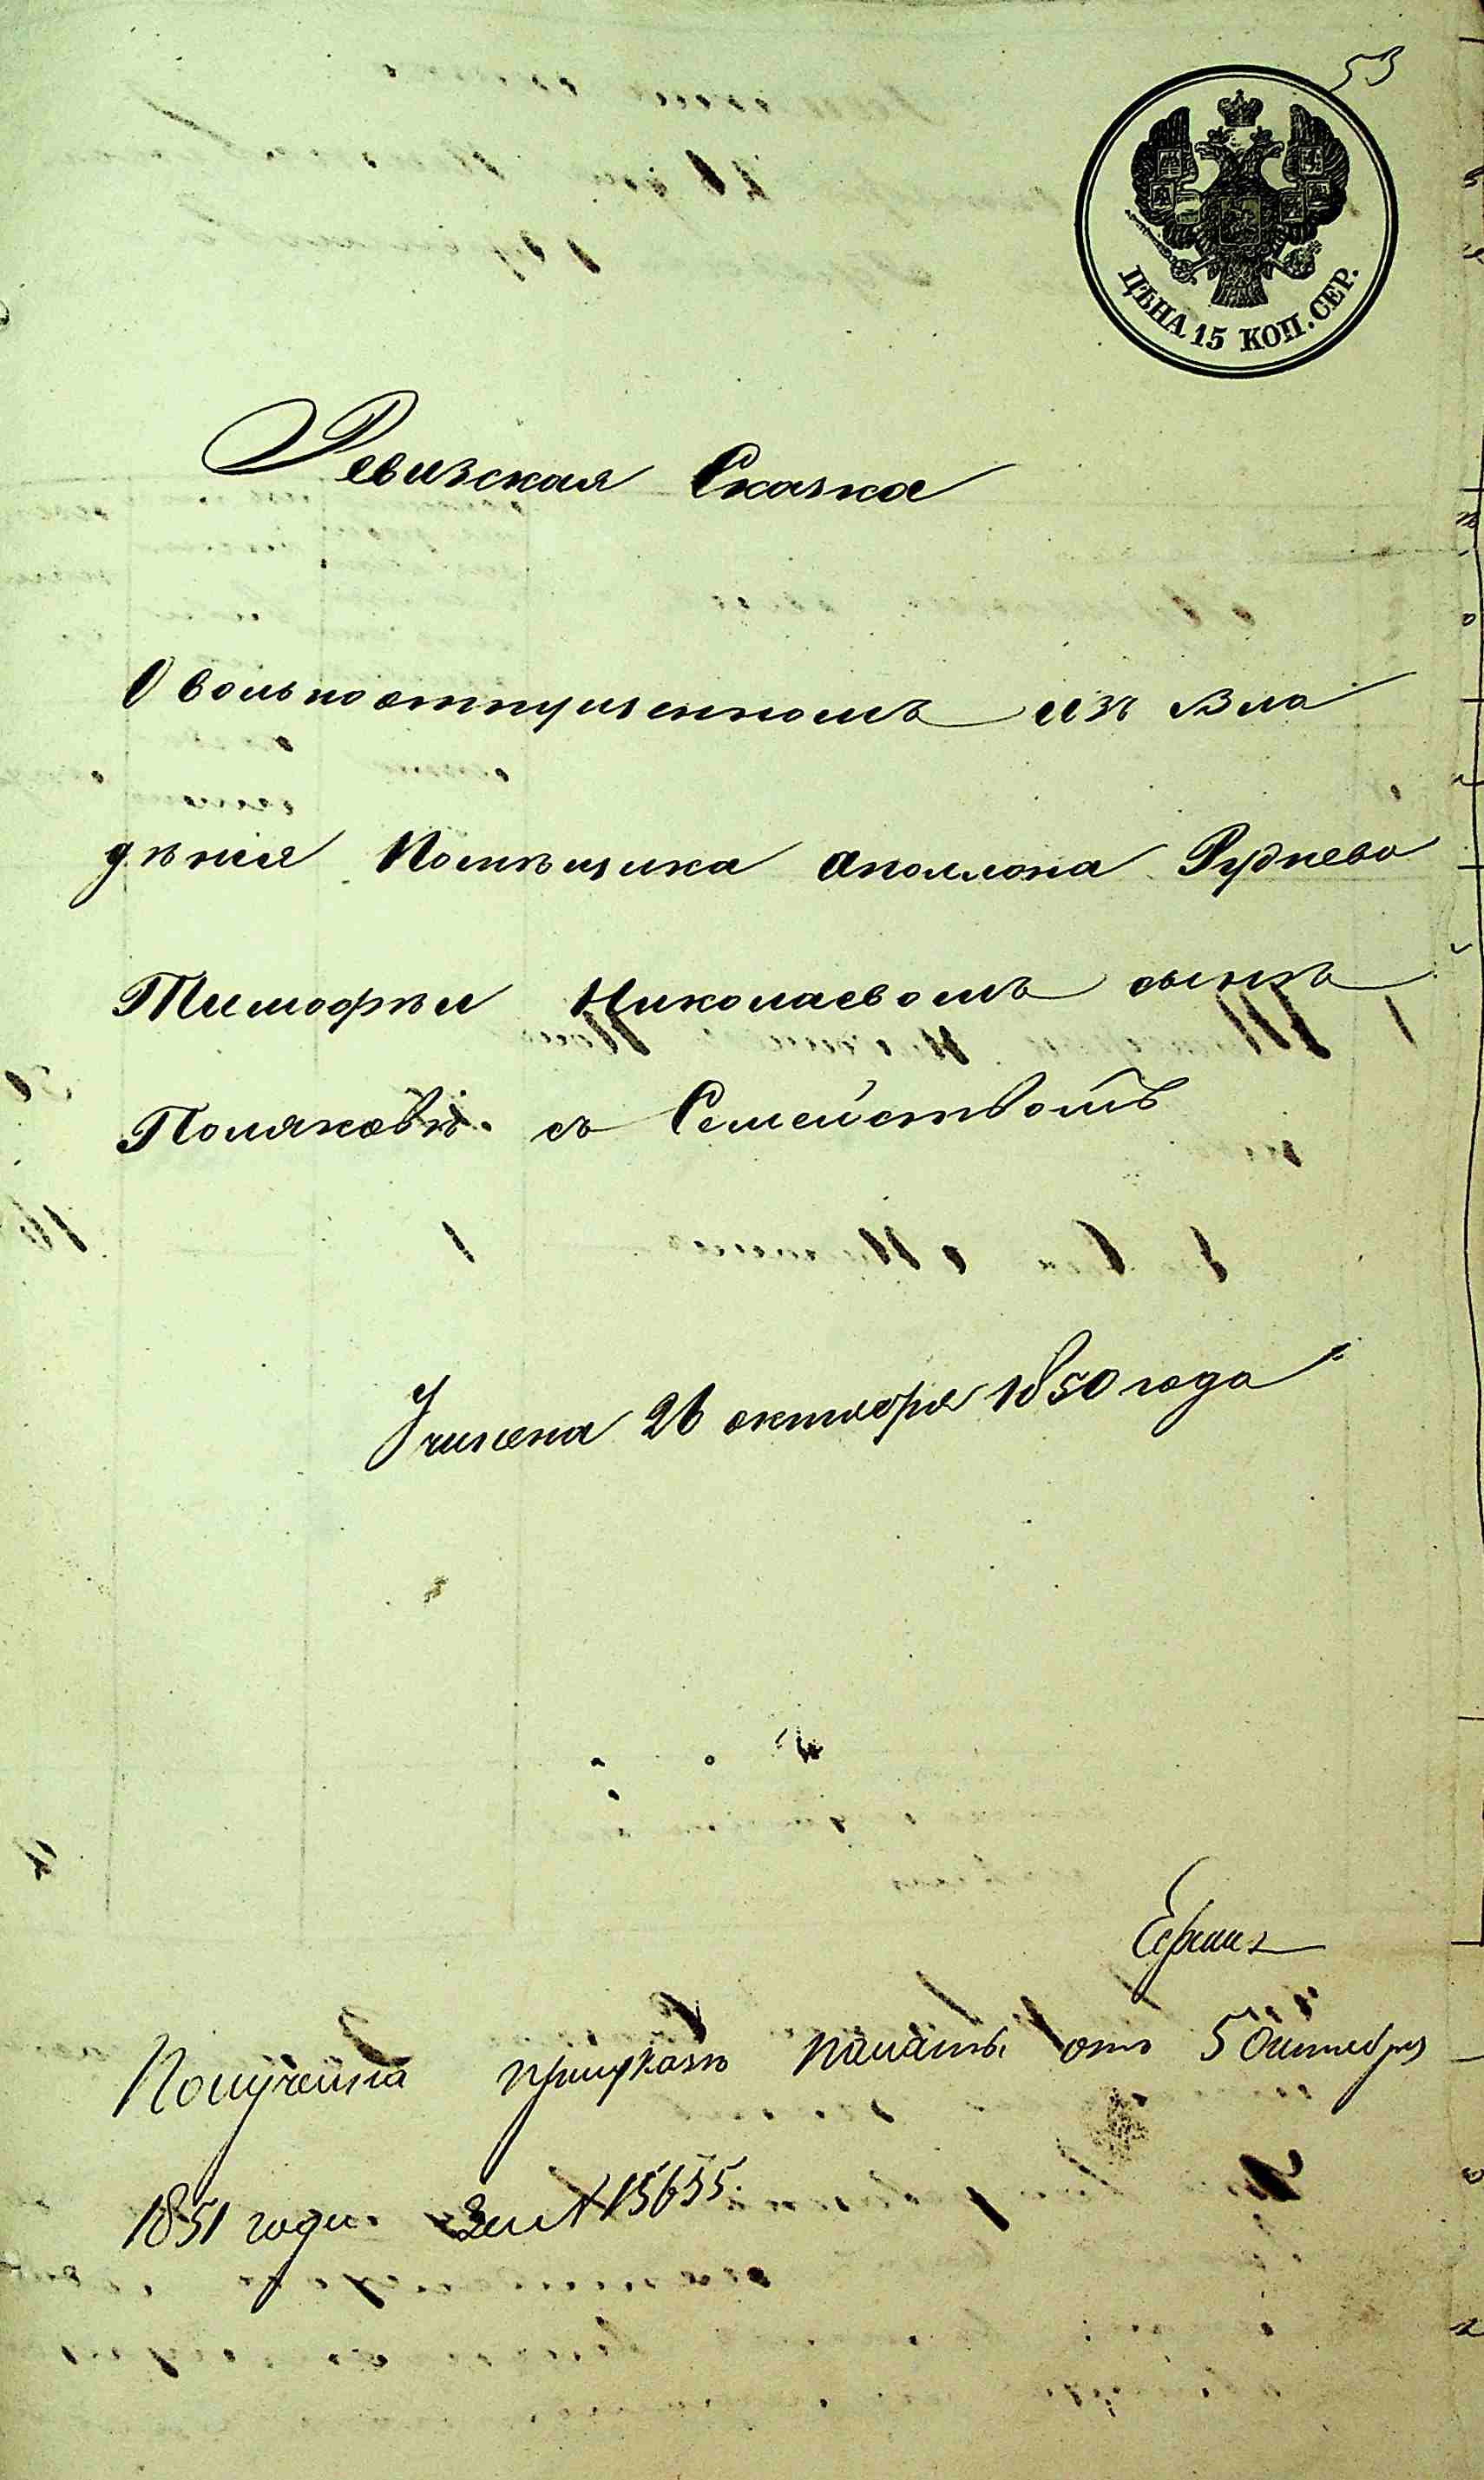 53
ЦѢНА 15 КОП. СЕР.
Ревизская Сказка
О вольноотпущенномъ изъ Вла
дѣнія Помѣщика Аполлона Руднева
Тимофѣи Николаевомъ сынѣ
Поляковѣ. съ Семействомъ
Учинена 26 октября 1850 года
Получена при указѣ палаты отъ 5 Октября
1851 года. За № 15655.